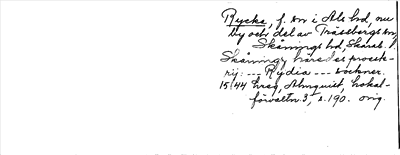 Rycka, f. sn i Ale hd, nu
by och del av Träsbergs sn,
Skånings hd, Skarab. l.
Skånings härads prosek-
rij: --- Rydia --- sockner.
1544 Almquist, Lokal-
förvaltn. 3, s. 190. orig.